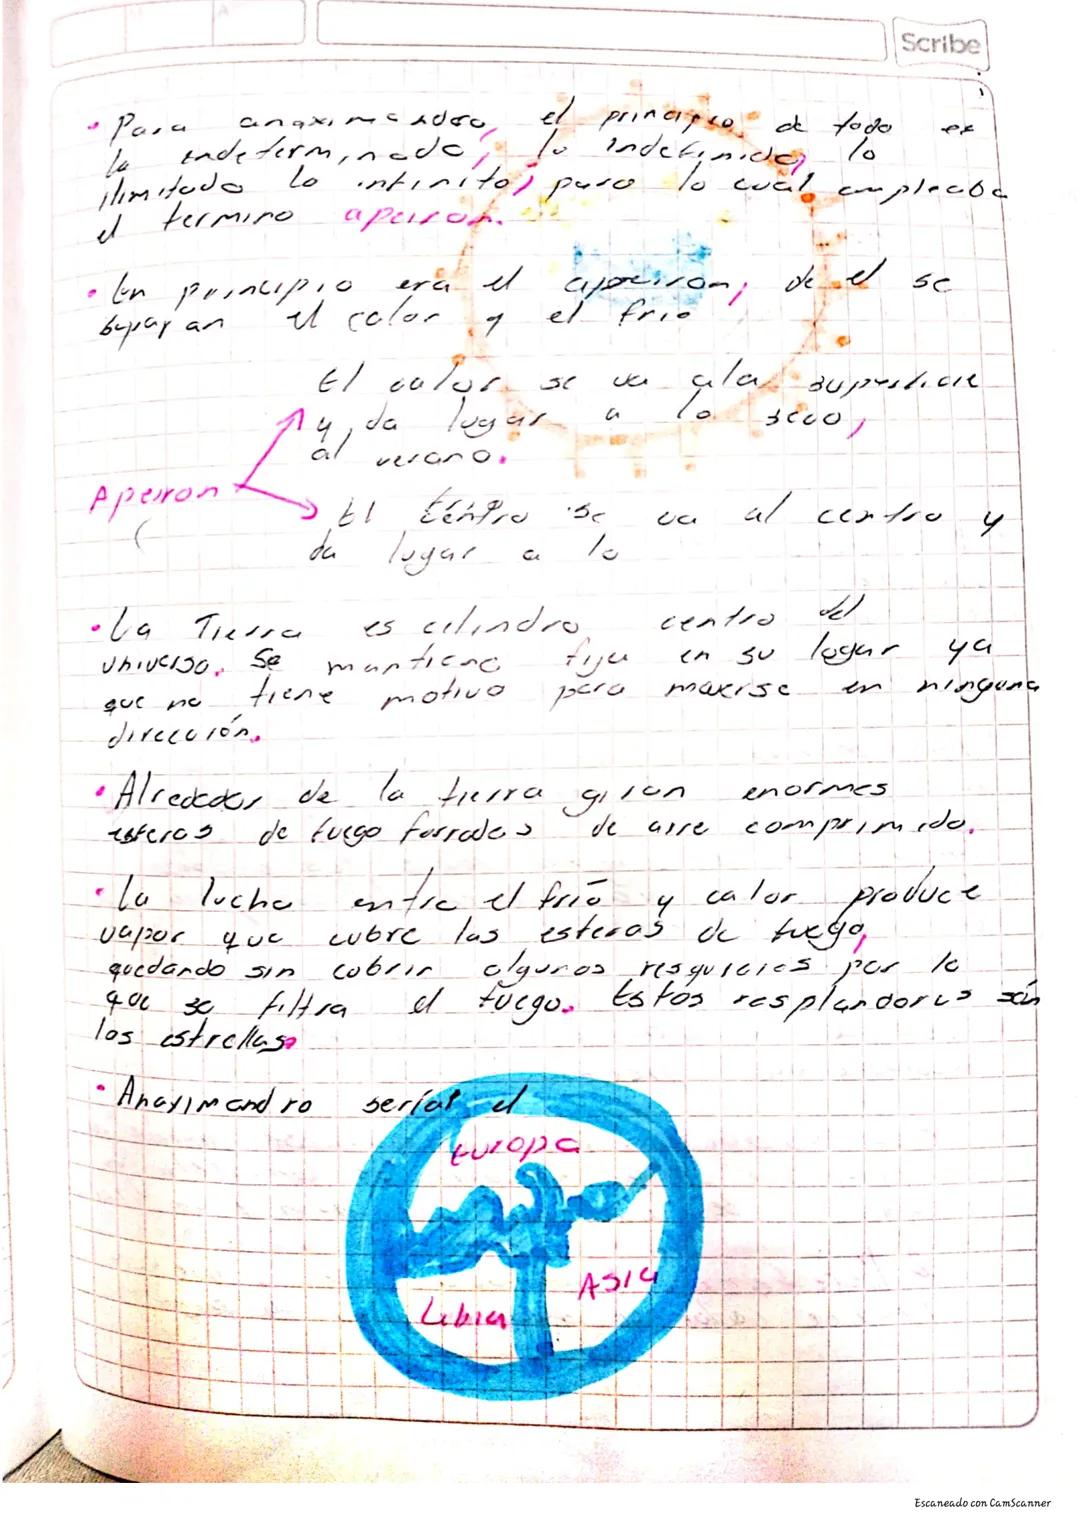 Scribe
• Para anaximandro, el principio de todo es
lo indeterminado, lo indefinido, lo
ilimitado lo infinito, para lo cual empleaba
el termino apeiron.
• En principio era el apeiron, de el se
separan el calor y el frio
El calor se va ala superficie
y da lugar a lo seco,
al verano.
Apeiron
El se va al centro y
da lugar a lo
• La Tierra es cilindro centro del
universo. Se mantiene fija en su lugar ya
que no tiene motivo para moverse en ninguna
dirección.
• Alrededor de la tierra giran enormes
esferas de fuego forradas de aire comprimido.
• La lucha entre el frio y calor produce
vapor que cubre las esferas de fuego,
quedando sin cubrir algunos resquicios por lo
que se filtra el fuego. Estos resplandores són
las estrellas.
• Anaximandro serial el
Europa
Asia
Libia
Escaneado con CamScanner